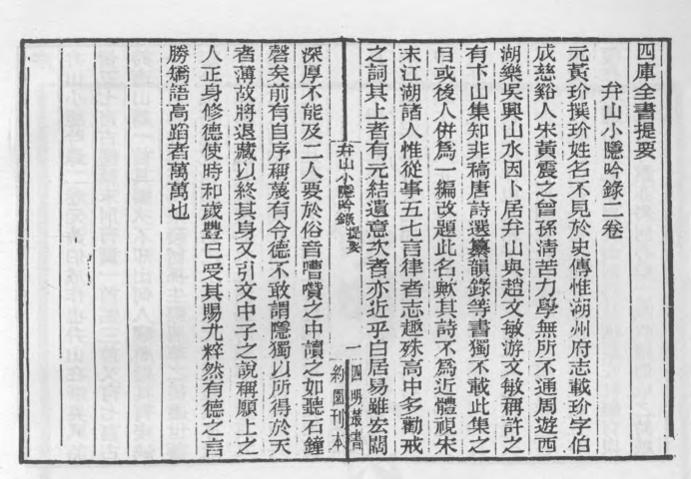 四庫全書提要
弁山小隱吟錄二卷
元黃玠撰玠姓名不見於史傳惟湖州府志載玠字伯
成慈谿人宋黃震之曾孫淸苦力學無所不通周遊西
湖樂吳興山水因卜居弁山與趙文敏游文敏稱許之
有卞山集知非稿唐詩選纂韻錄等書獨不載此集之
目或後人併爲一編改題此名歟其詩不爲近體視宋
末江湖諸人惟從事五七言律者志趣殊高中多勸戒
之詞其上者有元結遺意次者亦近乎白居易雖宏闊
弁山小隱吟錄 提要
一
四明叢書
約園刊本
深厚不能及二人要於俗音嘈囋之中讀之如聽石鐘
磬矣前有自序稱蔑有令德不敢謂隱獨以所得於天
者薄故將退藏以終其身又引文中子之說稱願上之
人正身修德使時和歲豐已受其賜尤粹然有德之言
勝嬌語高蹈者萬萬也